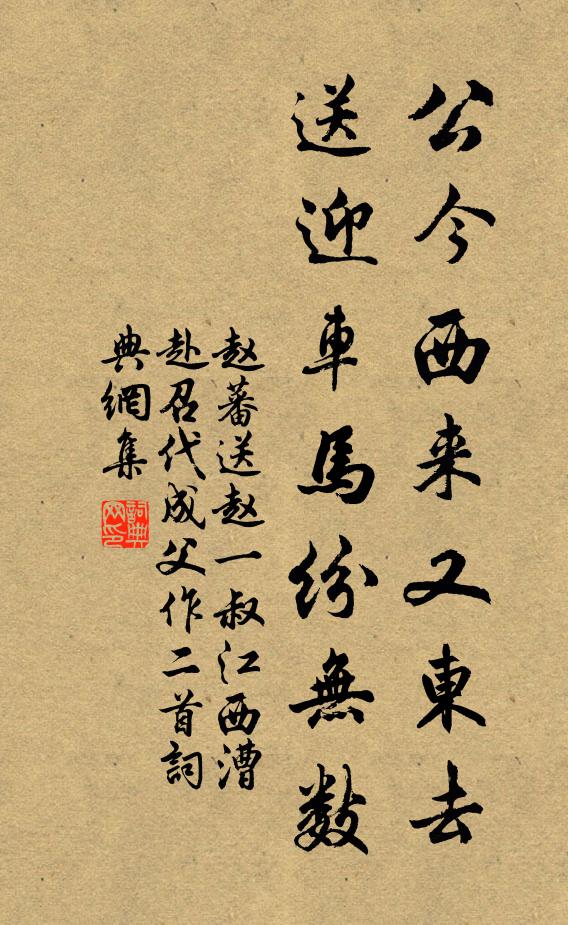 公今西来又東去
送迎車馬紛無数
赵蕃送赵一叔江西漕
赴召代成父作二首詞
典網集
詞典
网印